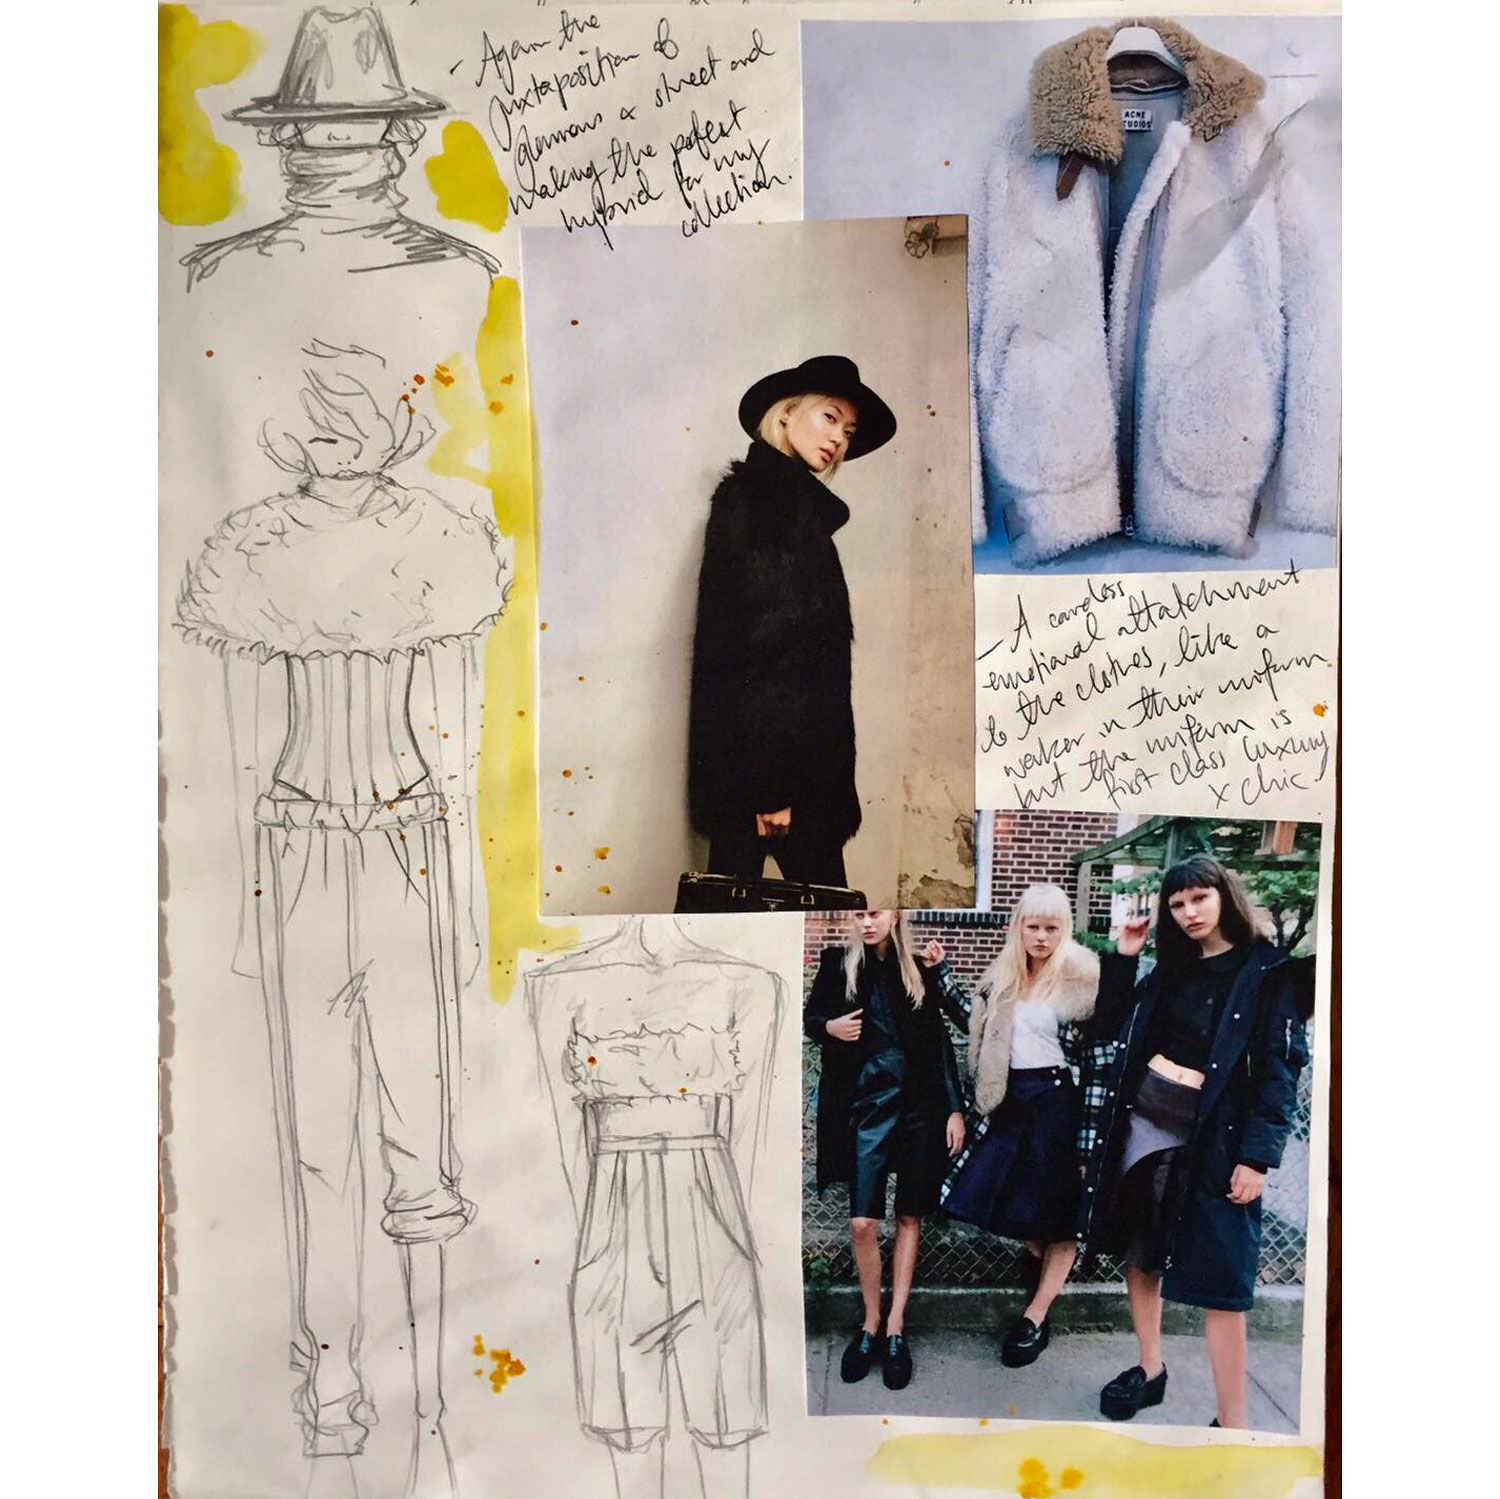 - Again the
juxtaposition of
glamorous & street and
making the perfect
hybrid for my
collection.
ACNE
STUDIOS
- A careless
emotional attatchment
to the clothes, like a
weaker in their uniform
but the uniform is
first class luxury
x chic.